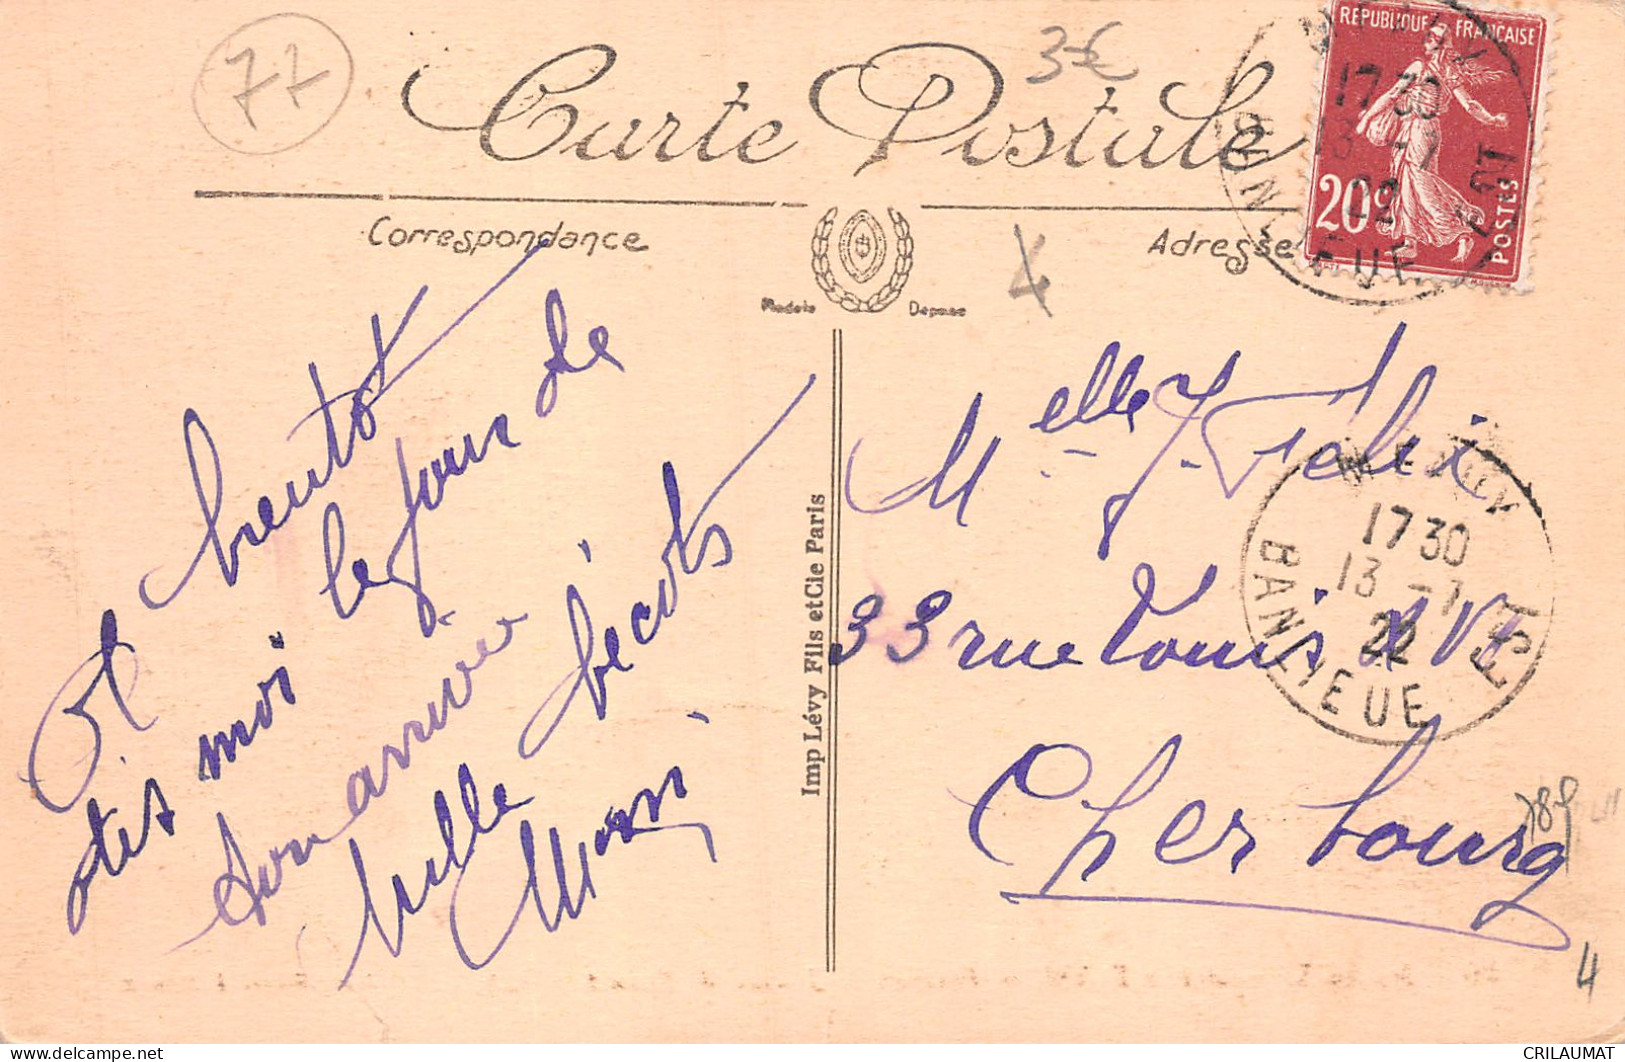 77
3€
Carte Postale
RÉPUBLIQUE FRANÇAISE
20c
POSTES
17 30
22
BANLIEUE EST
Correspondance
Adresse
Modèle Déposé
A bientôt
dites moi le jour de
ton arrivée
mille bécots
Imp Lévy Fils et Cie Paris
Melle J.
33 rue Louis XVI
Cherbourg
17 30
13 -7
22
BANLIEUE EST
4
CRILAUMAT